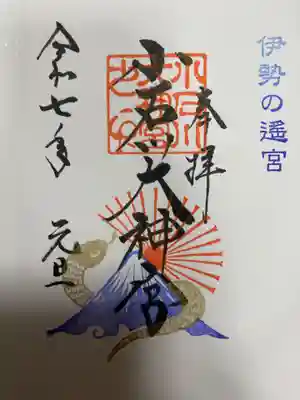 伊勢の遥宮
奉拝
小石川大神宮
令和七年 元旦